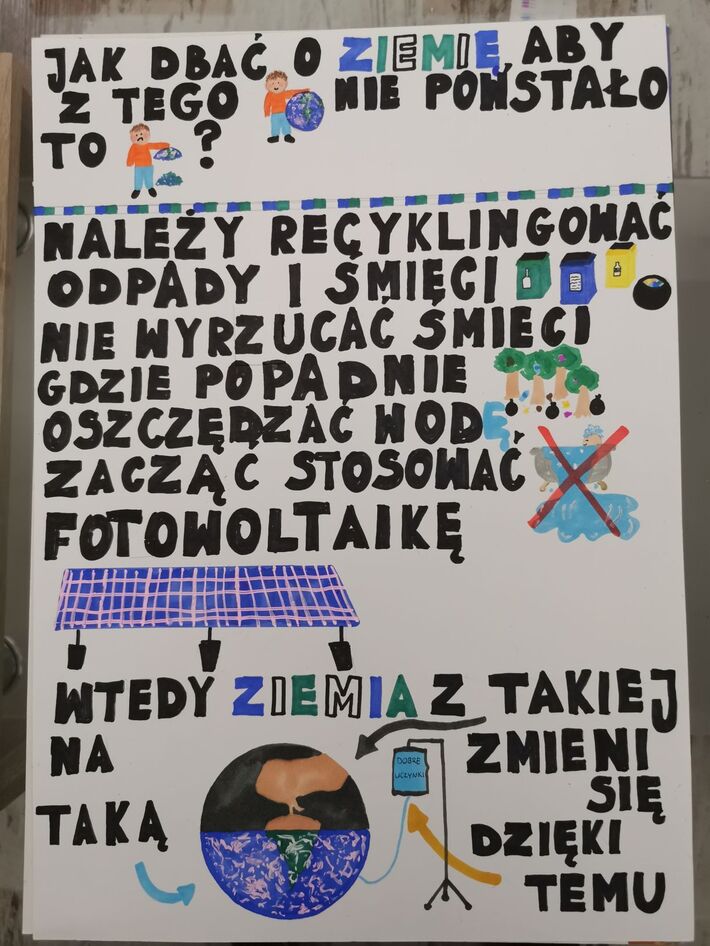 JAK DBAĆ O ZIEMIĘ, ABY
Z TEGO NIE POWSTAŁO
TO ?
NALEŻY RECYKLINGOWAĆ
ODPADY I ŚMIĘCI
NIE WYRZUCAĆ ŚMIECI
GDZIE POPADNIE
OSZCZĘDZAĆ WODĘ
ZACZĄĆ STOSOWAĆ
FOTOWOLTAIKĘ
WTEDY ZIEMIA Z TAKIEJ
NA
TAKĄ
ZMIENI
SIĘ
DZIĘKI
TEMU
DOBRE
UCZYNKI